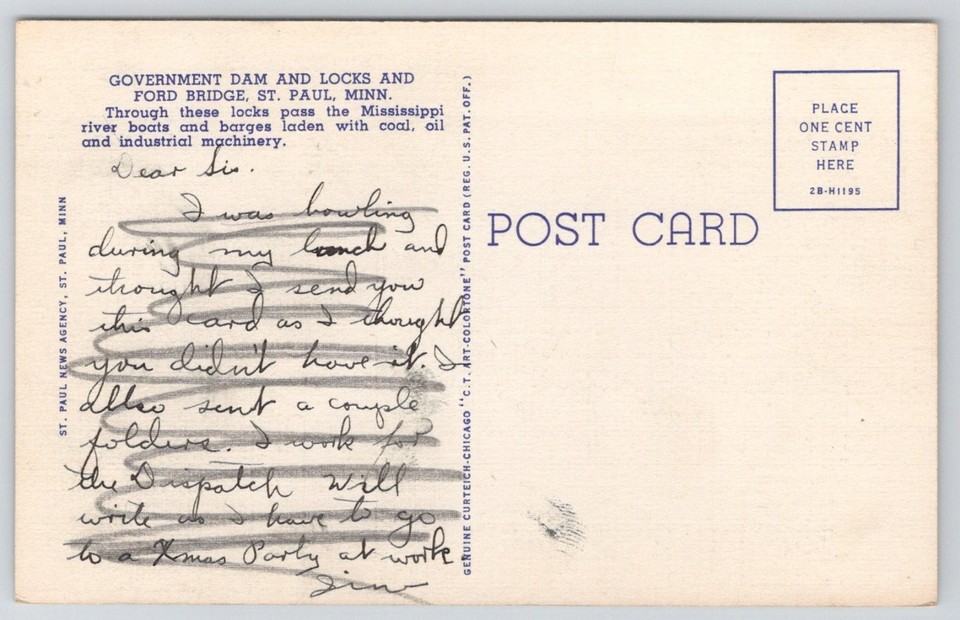 GOVERNMENT DAM AND LOCKS AND
FORD BRIDGE, ST. PAUL, MINN.
Through these locks pass the Mississippi
river boats and barges laden with coal, oil
and industrial machinery.
Dear Sis.
I was bowling
during my lunch and
thought I send you
this card as I thought
you didn't have it. I
also sent a couple
folders. I work for
the Dispatch Will
write as I have to go
to a Xmas Party at work.
Jim
ST. PAUL NEWS AGENCY, ST. PAUL, MINN
GENUINE CURTEICH-CHICAGO "C.T. ART-COLORTONE" POST CARD (REG. U.S. PAT. OFF.)
POST CARD
PLACE
ONE CENT
STAMP
HERE
2B-H1195